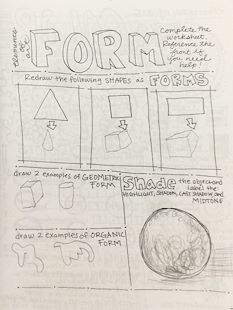 elements of art
FORM
Complete the
worksheet.
Reference the
front if
you need
help!
Redraw the following SHAPES as FORMS
draw 2 examples of GEOMETRIC
FORM
Shade the object and
label the
HIGHLIGHT, SHADOW, CAST SHADOW, and
MIDTONE
draw 2 examples of ORGANIC
FORM